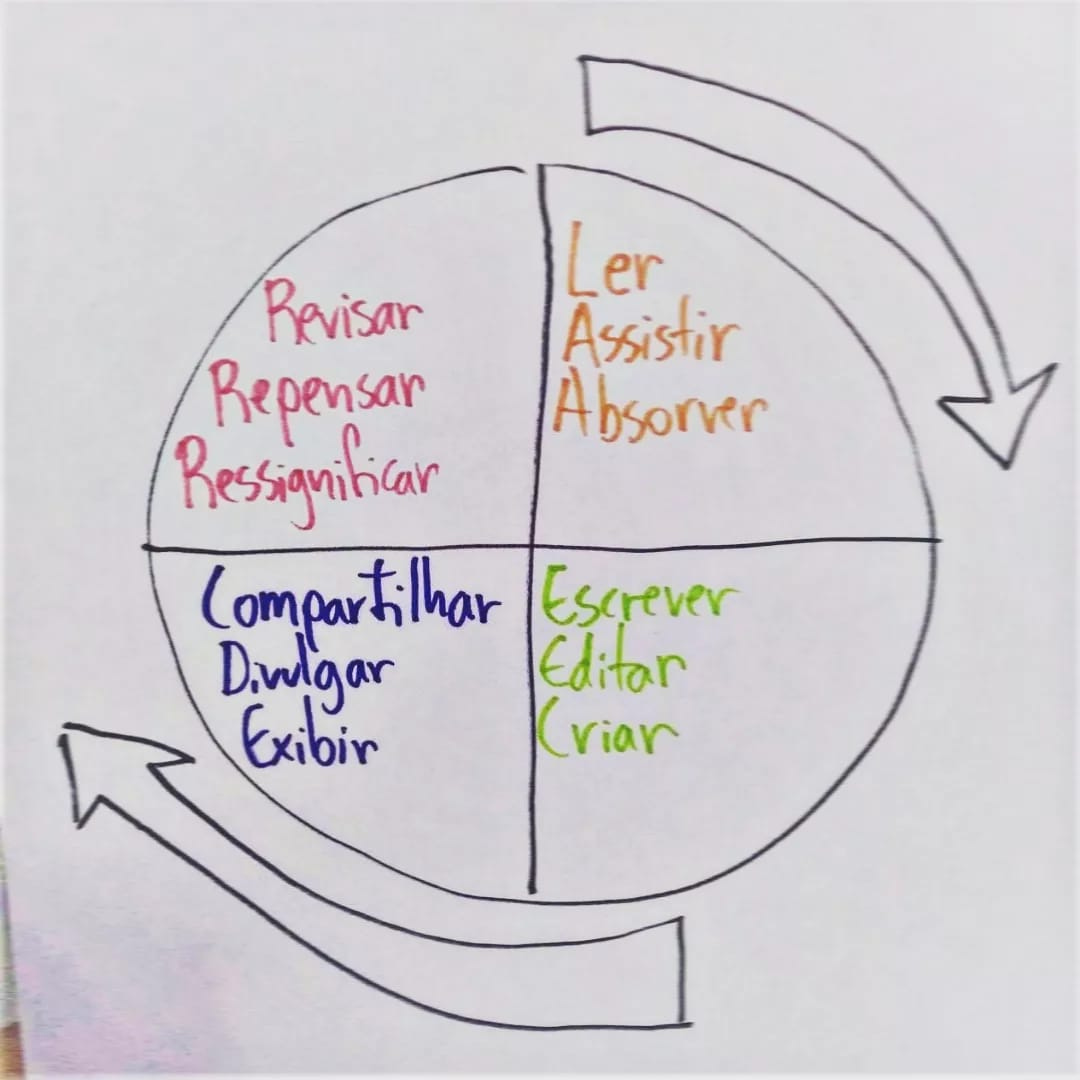 Revisar
Repensar
Ressignificar
Ler
Assistir
Absorver
Compartilhar
Divulgar
Exibir
Escrever
Editar
Criar